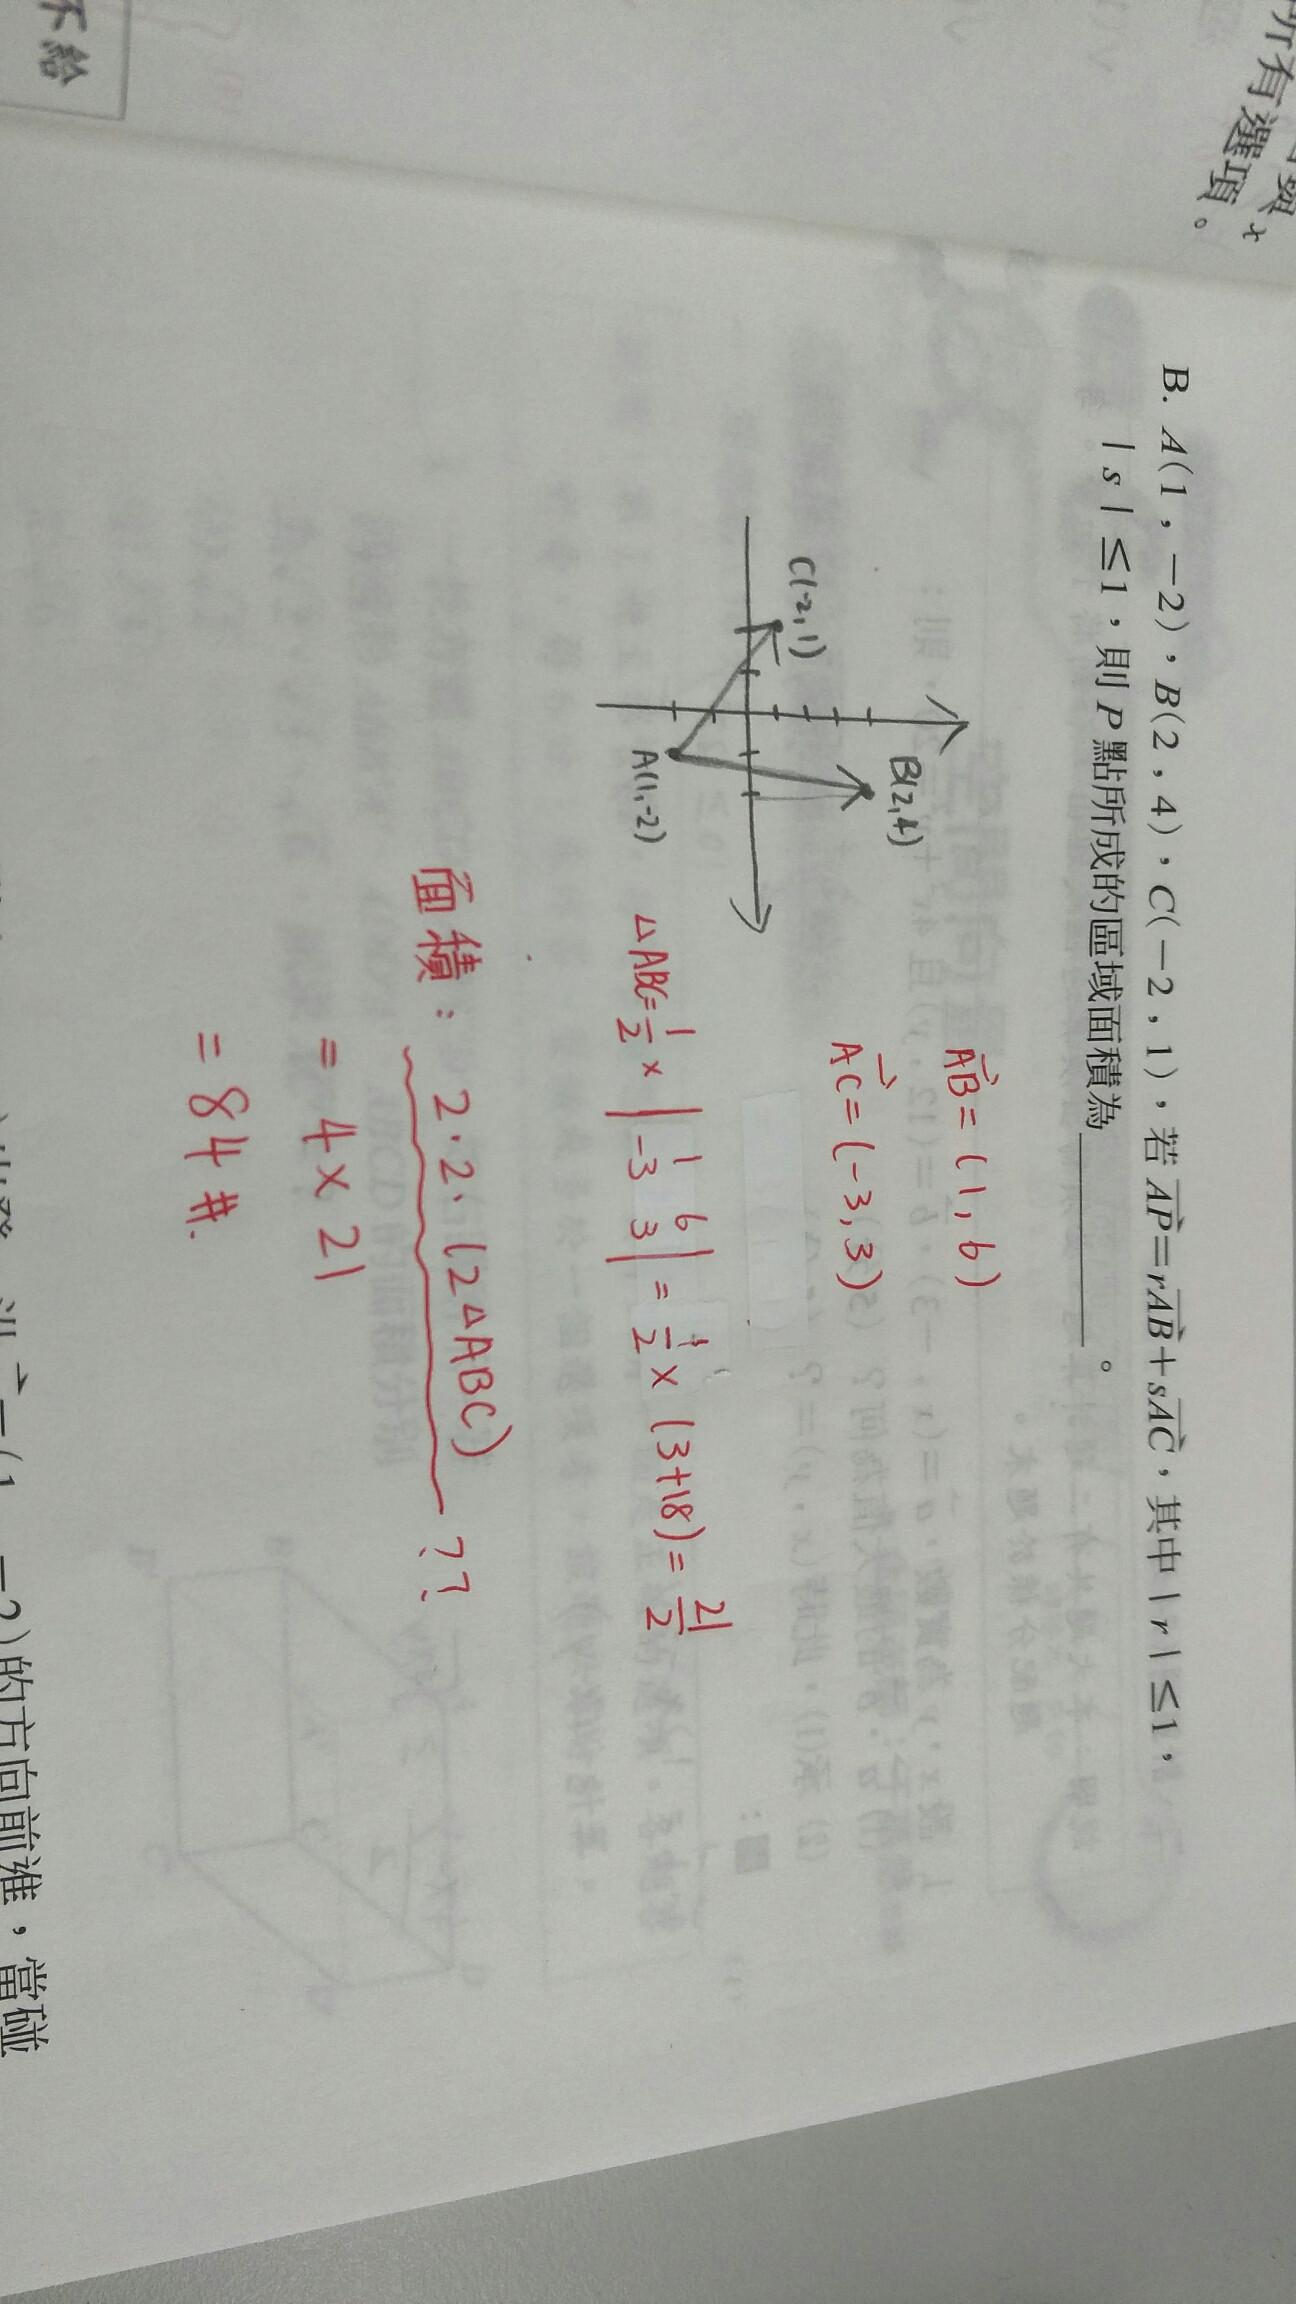 所有選項。
不給
B. A(1,-2),B(2,4),C(-2,1),若AP=rAB+sAC,其中|r|≤1,
|s|≤1,則P點所成的區域面積為______。
B(2,4)
C(-2,1)
A(1,-2)
AB=(1,6)
AC=(-3,3)
△ABC=1/2×|1 6|
|-3 3|=1/2×(3+18)=21/2
面積:2·2·(2△ABC)??
=4×21
=84#.
的方向前進,當碰